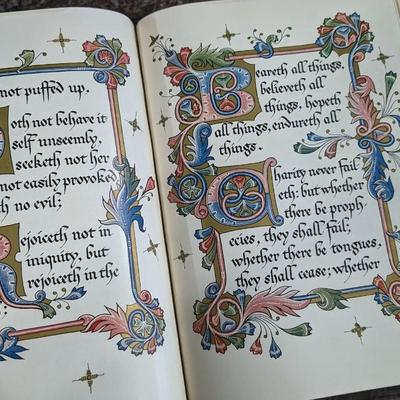 not puffed up,
oth not behave it
self unseemly,
seeketh not her
not easily provoked
th no evil;
Rejoiceth not in
iniquity, but
rejoiceth in the
Beareth all things,
believeth all
things, hopeth
all things, endureth all
things.
Charity never fail
eth: but whether
there be proph
ecies, they shall fail;
whether there be tongues,
they shall cease; whether